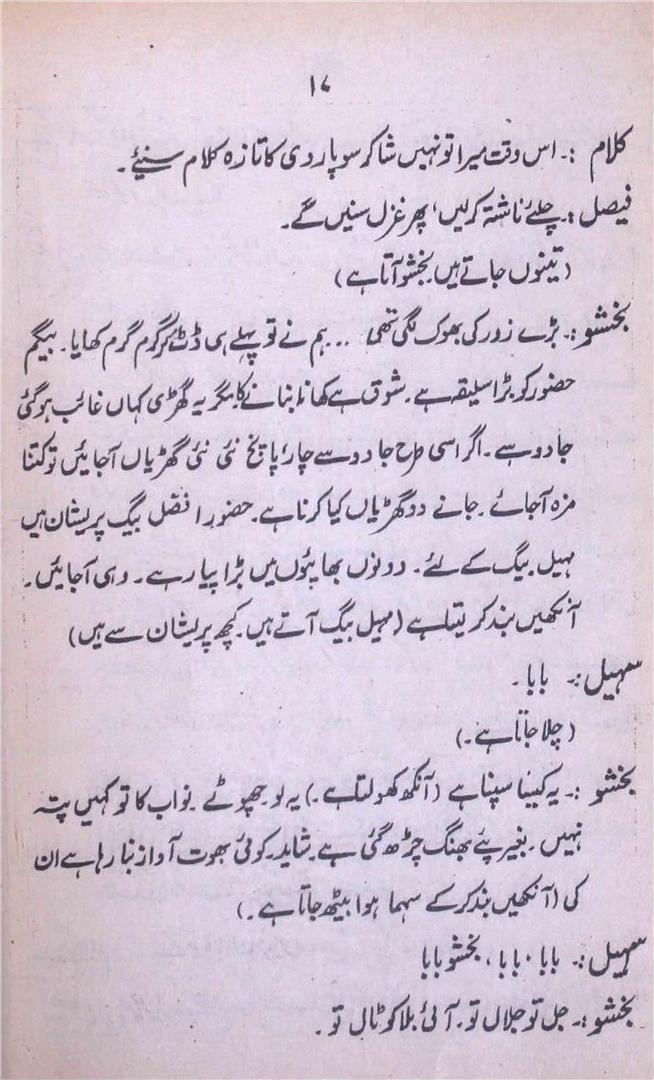 ۱۷
کلام :۔ اس وقت میرا تو نہیں شاکر سوپاردی کا تازہ کلام سنیئے۔
فیصل :۔ چلئے ناشتہ کرلیں، پھر غزل سنیں گے۔
(تینوں جاتے ہیں بخشو آتا ہے)
بخشو :۔ بڑے زور کی بھوک لگی تھی ... ہم نے تو پہلے ہی ڈٹ کر گرم گرم کھایا۔ بیگم
حضور کو بڑا سلیقہ ہے۔ شوق ہے کھانا بنانے کا مگر یہ گھڑی کہاں غائب ہوگئی
جادو ہے۔ اگر اسی طرح جادو سے چار، پانچ نئی نئی گھڑیاں آجائیں تو کتنا
مزہ آجائے۔ جانے دو گھڑیاں کیا کرنا ہے۔ حضور افضل بیگ پریشان ہیں
سہیل بیگ کے لئے۔ دونوں بھایئوں میں بڑا پیار ہے۔ وہی آجائیں۔
آنکھیں بند کر لیتا ہے (سہیل بیگ آتے ہیں۔ کچھ پریشان سے ہیں)
سہیل :۔ بابا۔
(چلا جاتا ہے۔)
بخشو :۔ یہ کیسا سپنا ہے (آنکھ کھولتا ہے۔) یہ لو۔ چھوٹے۔ نواب کا تو کہیں پتہ
نہیں۔ بغیر پئے بھنگ چڑھ گئی ہے۔ شاید۔ کوئی بھوت آواز بنا رہا ہے ان
کی (آنکھیں بند کرکے سہما ہوا بیٹھ جاتا ہے۔)
سہیل :۔ بابا، بابا، بخشو بابا
بخشو :۔ جل تو جلال تو۔ آئی بلا کو ٹال تو۔